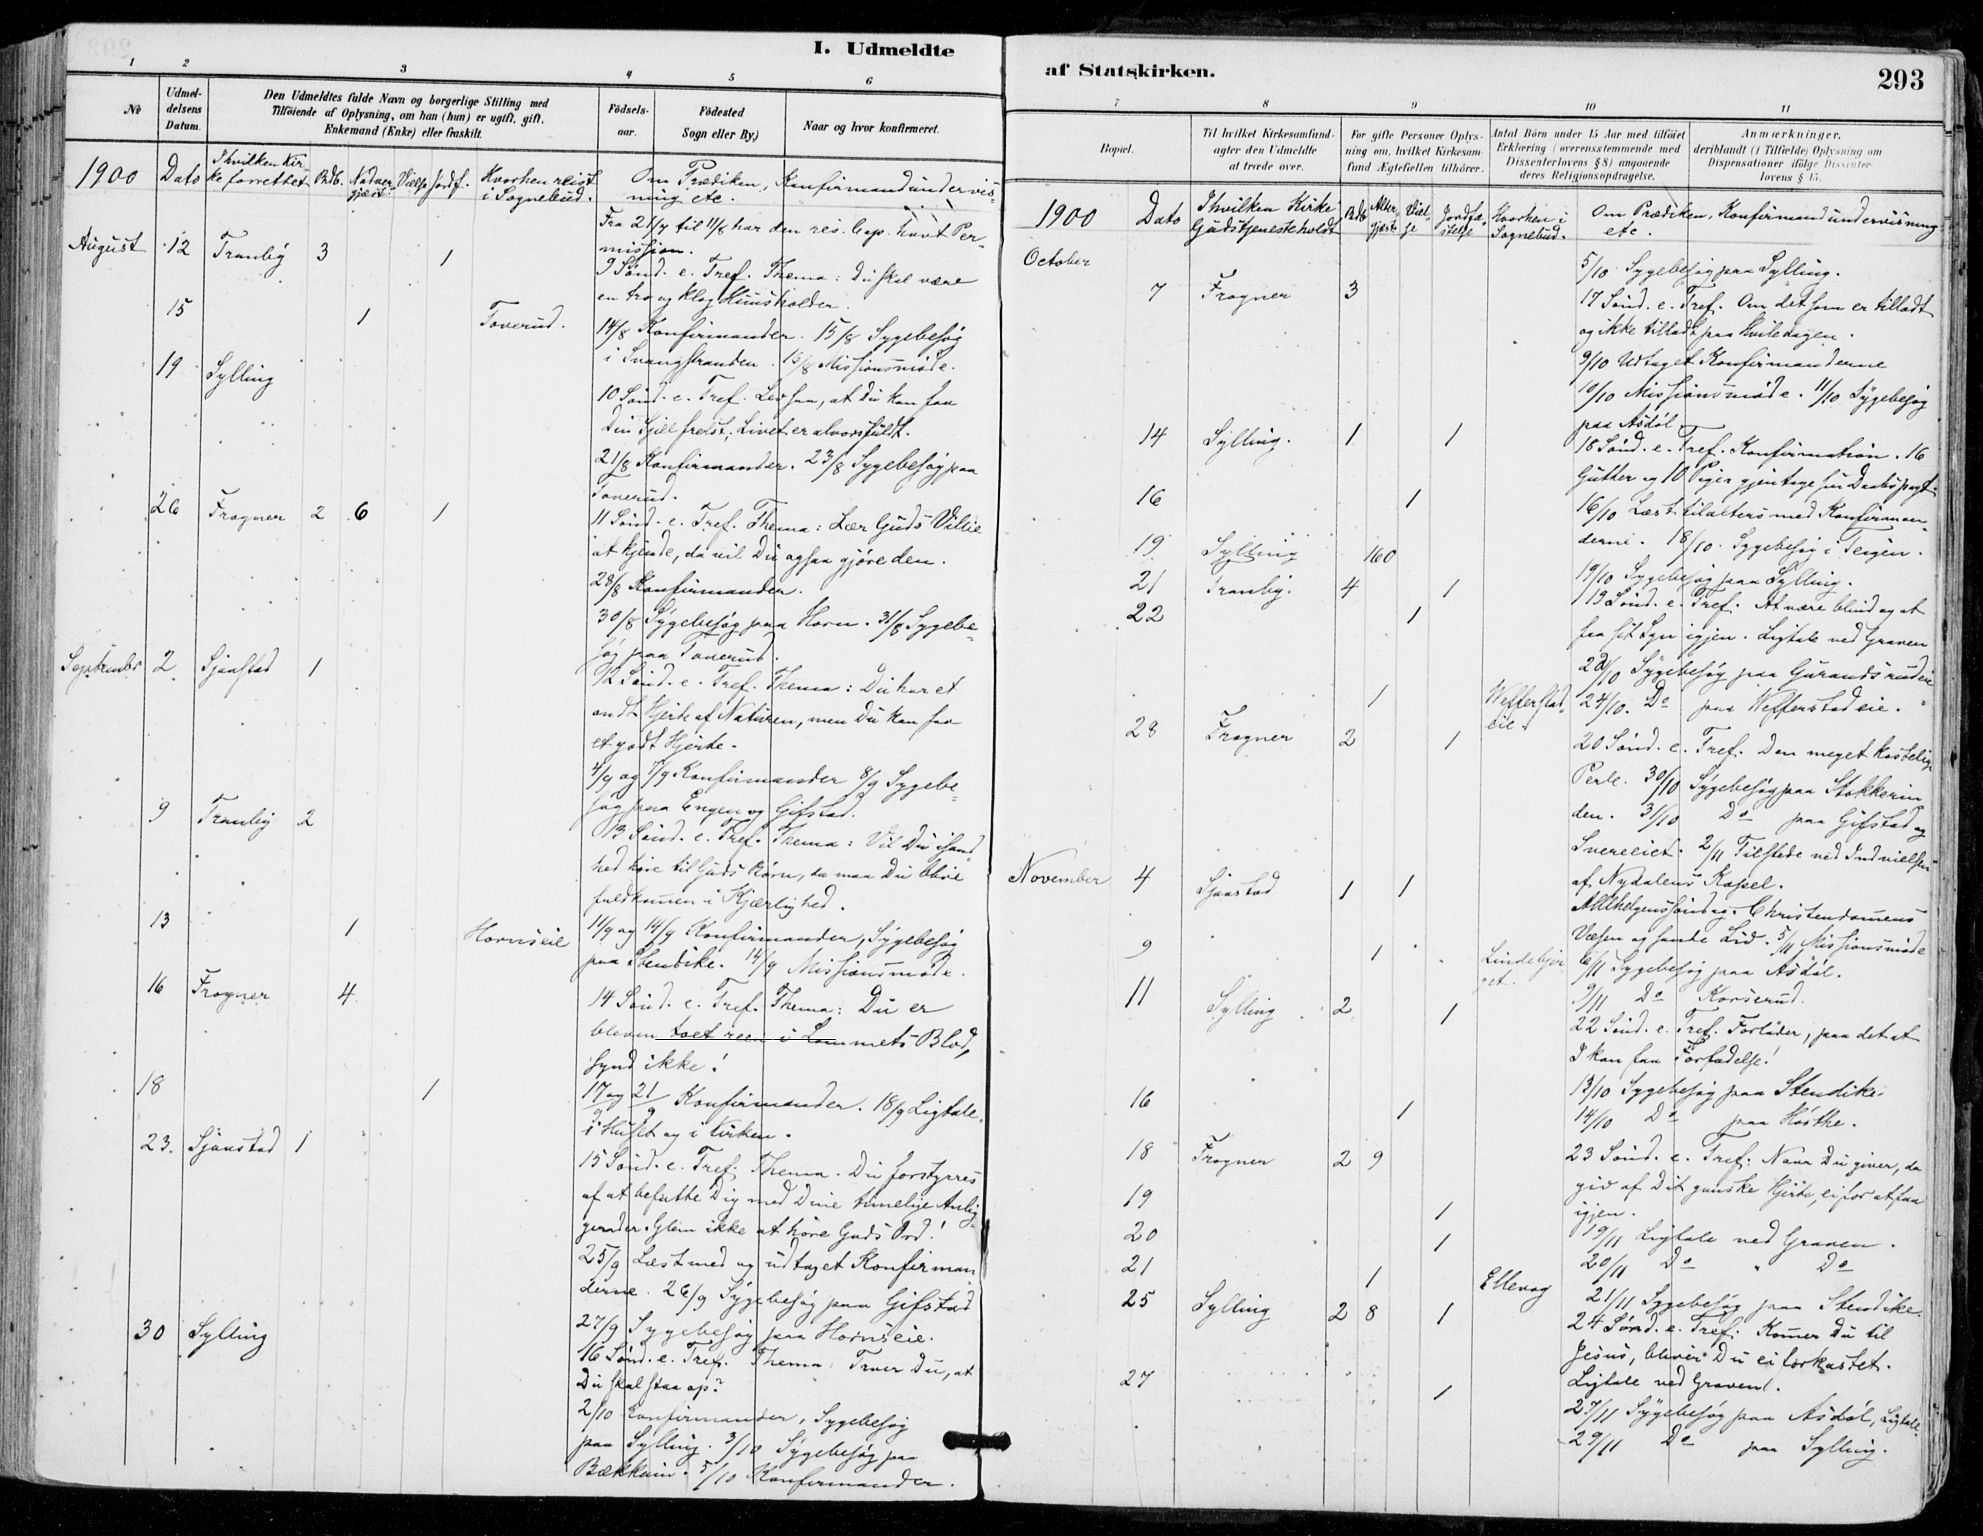 I. Udmeldte
1 2 3 4 5 6
№
Udmeldelsens Datum.
Den Udmeldtes fulde Navn og borgerlige Stilling med
Tilføiende af Oplysning, om han (hun) er ugift, gift,
Enkemand (Enke) eller fraskilt.
Fødselsaar.
Fødested
Sogn eller By)
Naar og hvor konfirmeret.
1900 Dato I hvilken Kirke forrettet Bdb. Nadvergjæst Vielse Jordf. Hvorhen reist i Sognebud. Om Prædiken, Konfirmandundervisning etc.
Fra 21/7 til 11/8 har den res. Cap. havt Permission.
August 12 Tranby 3 1
9 Sønd. e. Tref. Thema: Du skal være
en tro og klog Huusholder.
15 1 Toverud.
14/8 Konfirmander. 15/8 Sygebesøg
i Svangstranden. 15/8 Missionsmøde.
19 Sylling
10 Sønd. e. Tref. Lev saa, at Du kan faa
Din Sjæl frelst, Livet er alvorsfuldt.
21/8 Konfirmander. 23/8 Sygebesøg paa
Toverud.
26 Frogner 2 6 1
11 Sønd. e. Tref. Thema: Lær Guds Villie
at kjende, da vil Du ogsaa gjøre den.
28/8 Konfirmander.
30/8 Sygebesøg paa Horn. 31/8 Sygebe-
søg paa Toverud.
September 2 Sjaastad 1
12 Sønd. e. Tref. Thema: Du har et
ondt Hjerte af Naturen, men Du kan faa
et godt Hjerte.
4/9 og 7/9 Konfirmander 8/9 Sygebe-
søg paa Engen og Gifstad.
9 Tranby 2
13 Sønd. e. Tref. Thema: Vil Du i Sand-
hed høre til Guds Børn, da maa Du blive
fuldkommen i Kjærlighed.
13 1 Hornseie
11/9 og 14/9 Konfirmander, Sygebesøg
paa Stendike. 14/9 Missionsmøde.
16 Frogner 4
14 Sønd. e. Tref. Thema: Du er
bleven toet reen i Lammets Blod,
synd ikke!
18 1
17/9 og 21/9 Konfirmander. 18/9 Ligtale
i Huset og i Kirken.
23. Sjaastad 1
15 Sønd. e. Tref. Thema. Du forstyrres
af at befatte Dig med Dine timelige Anlig-
gender. Glem ikke at høre Guds Ord!
25/9 Læst med og udtaget Konfirman
derne. 26/9 Sygebesøg paa Gifstad
27/9 Sygebesøg paa Hornseie.
30 Sylling
16 Sønd. e. Tref. Thema: Troer Du, at
Du skal staa op?
2/10 Konfirmander, Sygebesøg
paa Sylling. 3/10 Sygebesøg paa
5/10 Konfirmander.
af Statskirken.
293
7 8 9 10 11
Bopæl.
Til hvilket Kirkesamfund-
agter den Udmeldte
at træde over.
For gifte Personer Oplys-
ning om, hvilket Kirkesam-
fund Ægtefællen tilhører.
Antal Børn under 15 Aar med tilføiet
Erklæring (overensstemmende med
Dissenterlovens § 8) angaaende
deres Religionsopdragelse.
Anmærkninger,
deriblandt (i Tilfælde) Oplysning om
Dispensationer ifølge Dissenter-
lovens § 15.
1900 Dato I hvilken Kirke Gudstjeneste holdt Bdb Altergjæster Vielse Jordfæstelse Hvorhen i Sognebud. Om Prædiken, Konfirmandundervisning etc.
October
5/10 Sygebesøg paa Sylling.
7 Frogner 3
17 Sønd. e. Tref. Om det som er tilladt
og ikke tilladt paa Hviledagen.
9/10 Udtaget Konfirmanderne
10/10 Missionsmøde. 11/10 Sygebesøg
paa Asdøl
14 Sylling. 1 1
18 Sønd. e. Tref. Konfirmation. 16
Gutter og 10 Piger gjentage sin Daabspagt.
16 1
16/10 Læst tilalters med Konfirman-
derne. 18/10. Sygebesøg i Teigen.
19 Sylling 160
19/10 Sygebesøg paa Sylling.
21 Tranby. 4 1
19 Sønd. e. Tref. At være blind og at
22 1
faa sit Syn igjen. Ligtale ved Graven
22/10 Sygebesøg paa
1 Wefferstad eie.
24/10. Do paa Wefferstad eie.
28 Frogner 2 1
20 Sønd. e. Tref. Den meget kostelige
Perle. 30/10 Sygebesøg paa Stokkerin
den. 31/10 Do paa Gifstad og
Svereeiet. 2/11 Tilstede ved Indvielsen
af Nydalens Kapel.
November 4 Sjaastad 1 1
Allehelgenssøndag. Christendommens
Væsen og sande Lid. 5/11 Missionsmøde
9 1
6/11 Sygebesøg paa Asdøl.
9/11 Do Korserud.
11 Sylling 2 1
22 Sønd. e. Tref. Forlader, paa det at
I kan faa Forladelse!
13/10 Sygebesøg paa Stendike.
16 1
14/10 Do paa Høsthe.
18 Frogner 2 9
23 Sønd. e. Tref: Naar Du giver, da
giv af Dit ganske Hjerte, ei for at faa
igjen.
19 1
19/11 Ligtale ved Graven.
20 1
20/11 Do " Do
21 1 Ellevog
21/11 Sygebesøg paa Stendike.
25 Sylling 2 8 1
24 Sønd. e. Tref: Kommer Du til
Jesus, bliver Du ei forkastet.
Ligtale ved Graven.
27 1
27/11 Sygebesøg paa Asdøl, Ligtale
29/11 Do paa Sylling.